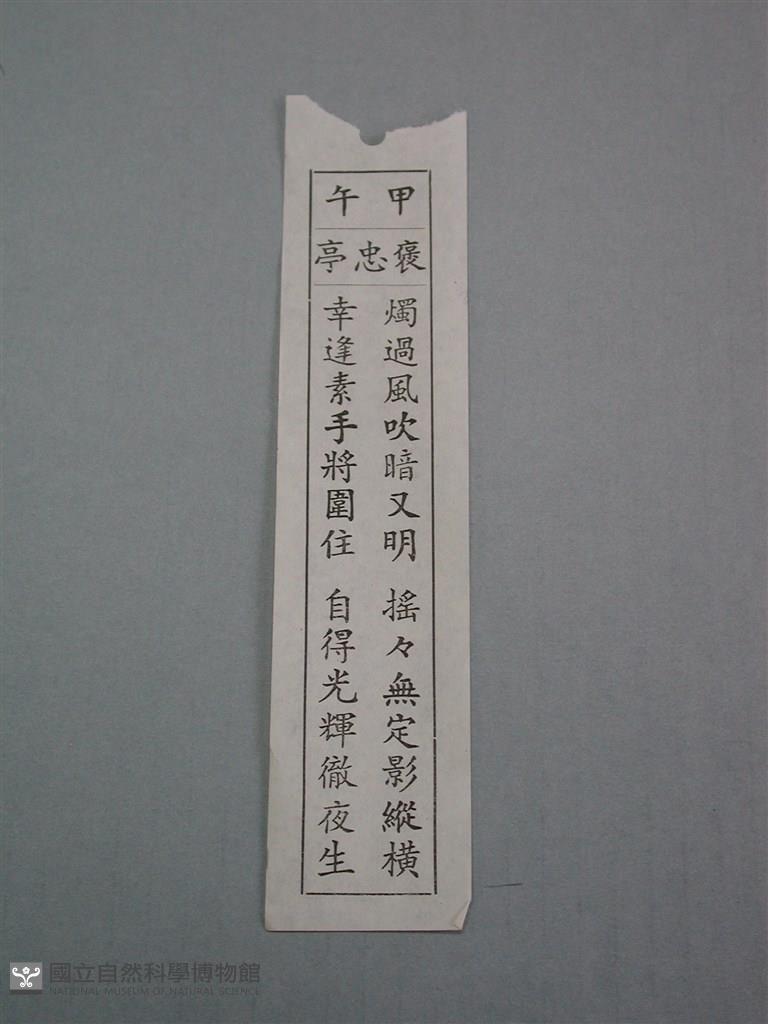 甲午
褒忠亭
燭過風吹暗又明 搖々無定影縱橫
幸逢素手將圍住 自得光輝徹夜生
國立自然科學博物館
NATIONAL MUSEUM OF NATURAL SCIENCE